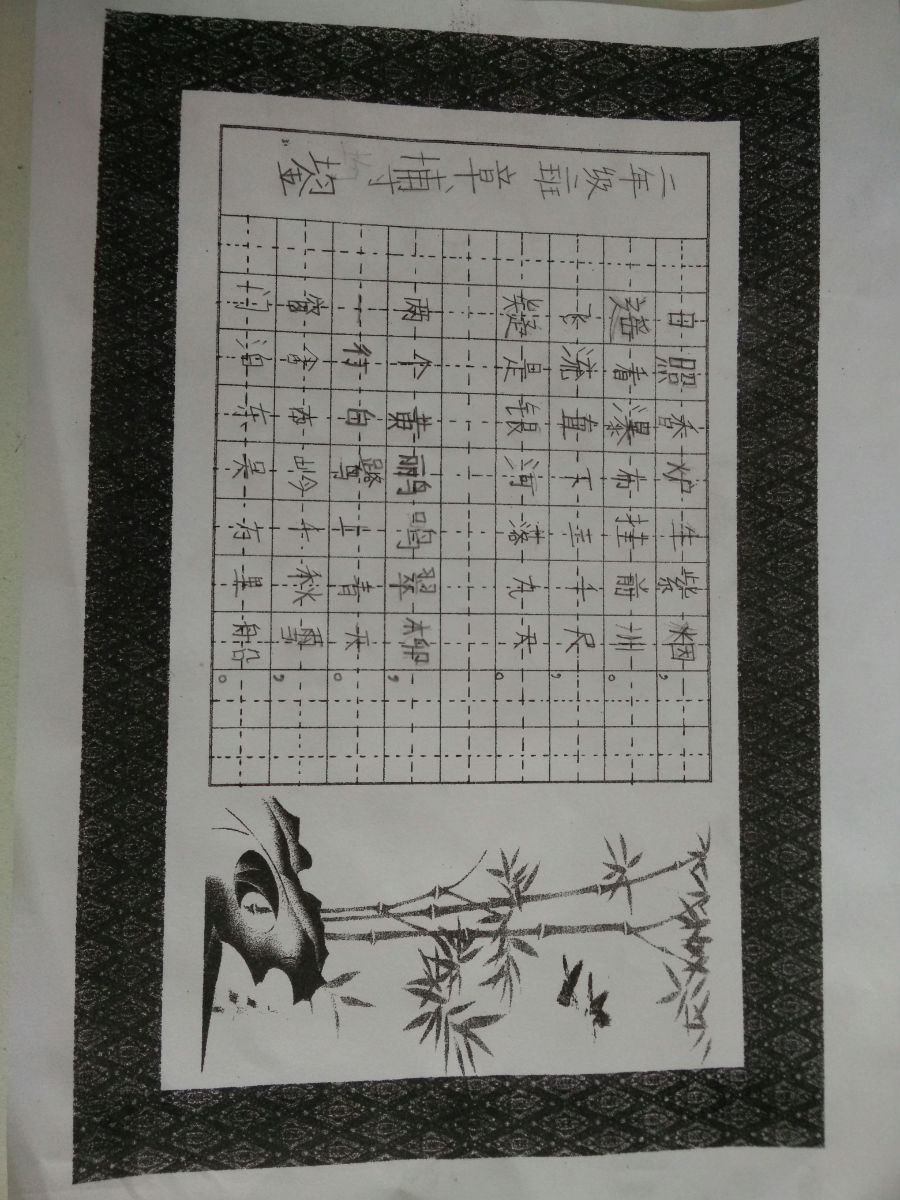 二年级二班章鋆
日照香炉生紫烟，
遥看瀑布挂前川。
飞流直下三千尺，
疑是银河落九天。
两个黄鹂鸣翠柳，
一行白鹭上青天。
窗含西岭千秋雪，
门泊东吴万里船。